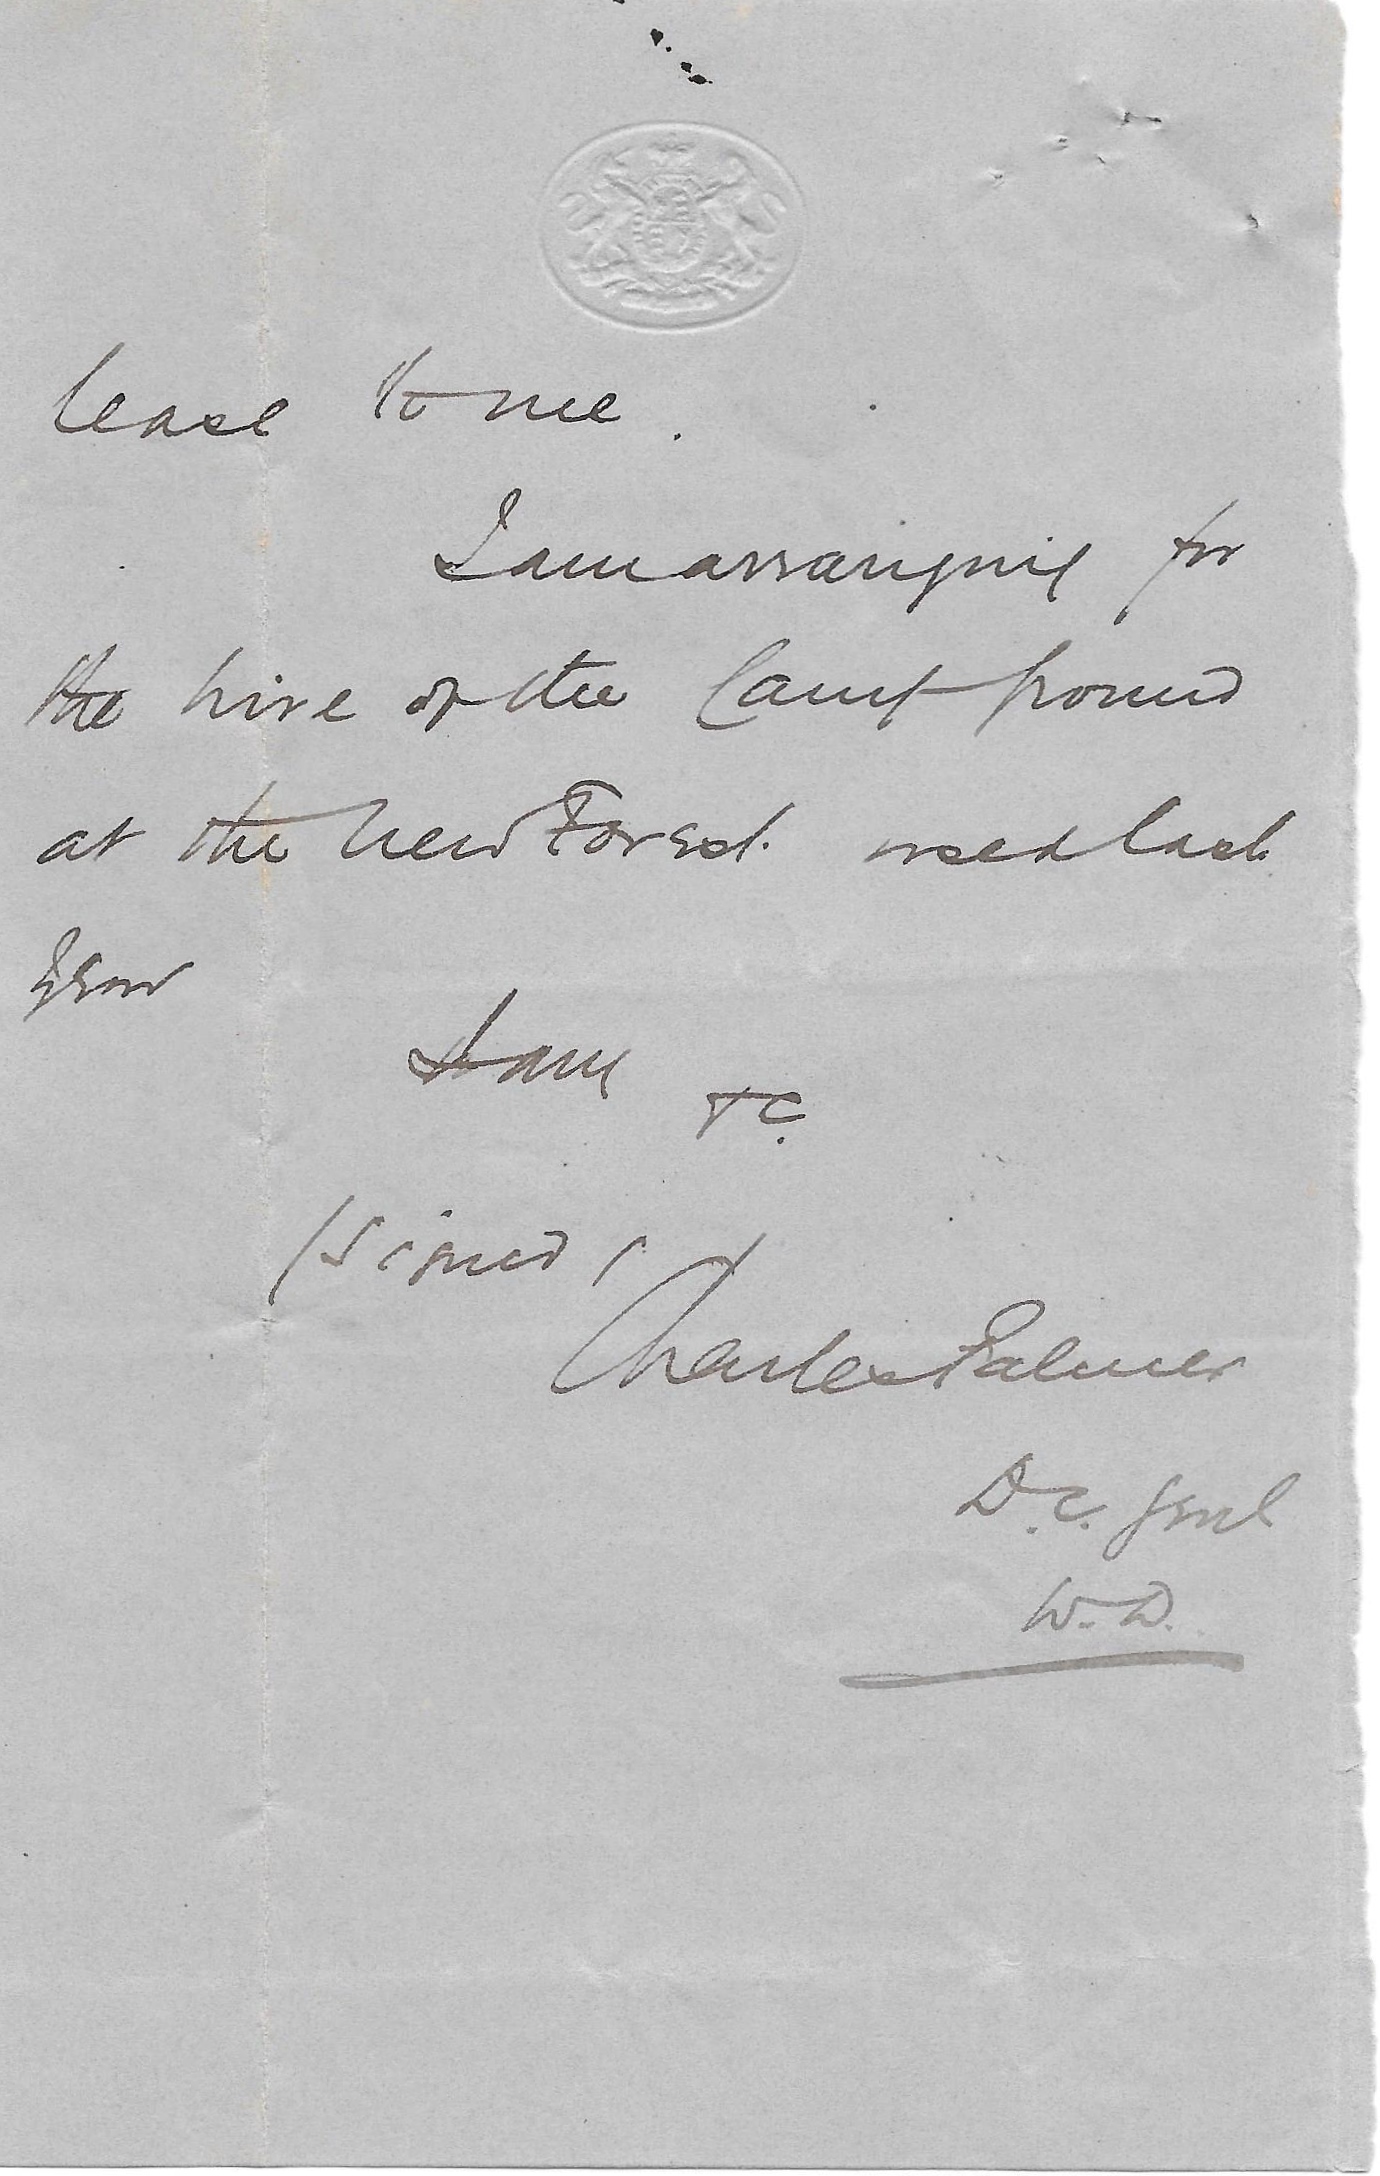 lease to me.
I am arranging for
the hire of the Camp Ground
at the New Forest used last
year
I am
&c.
(signed)
Charles Palmer
D.C. Genl
W.D.